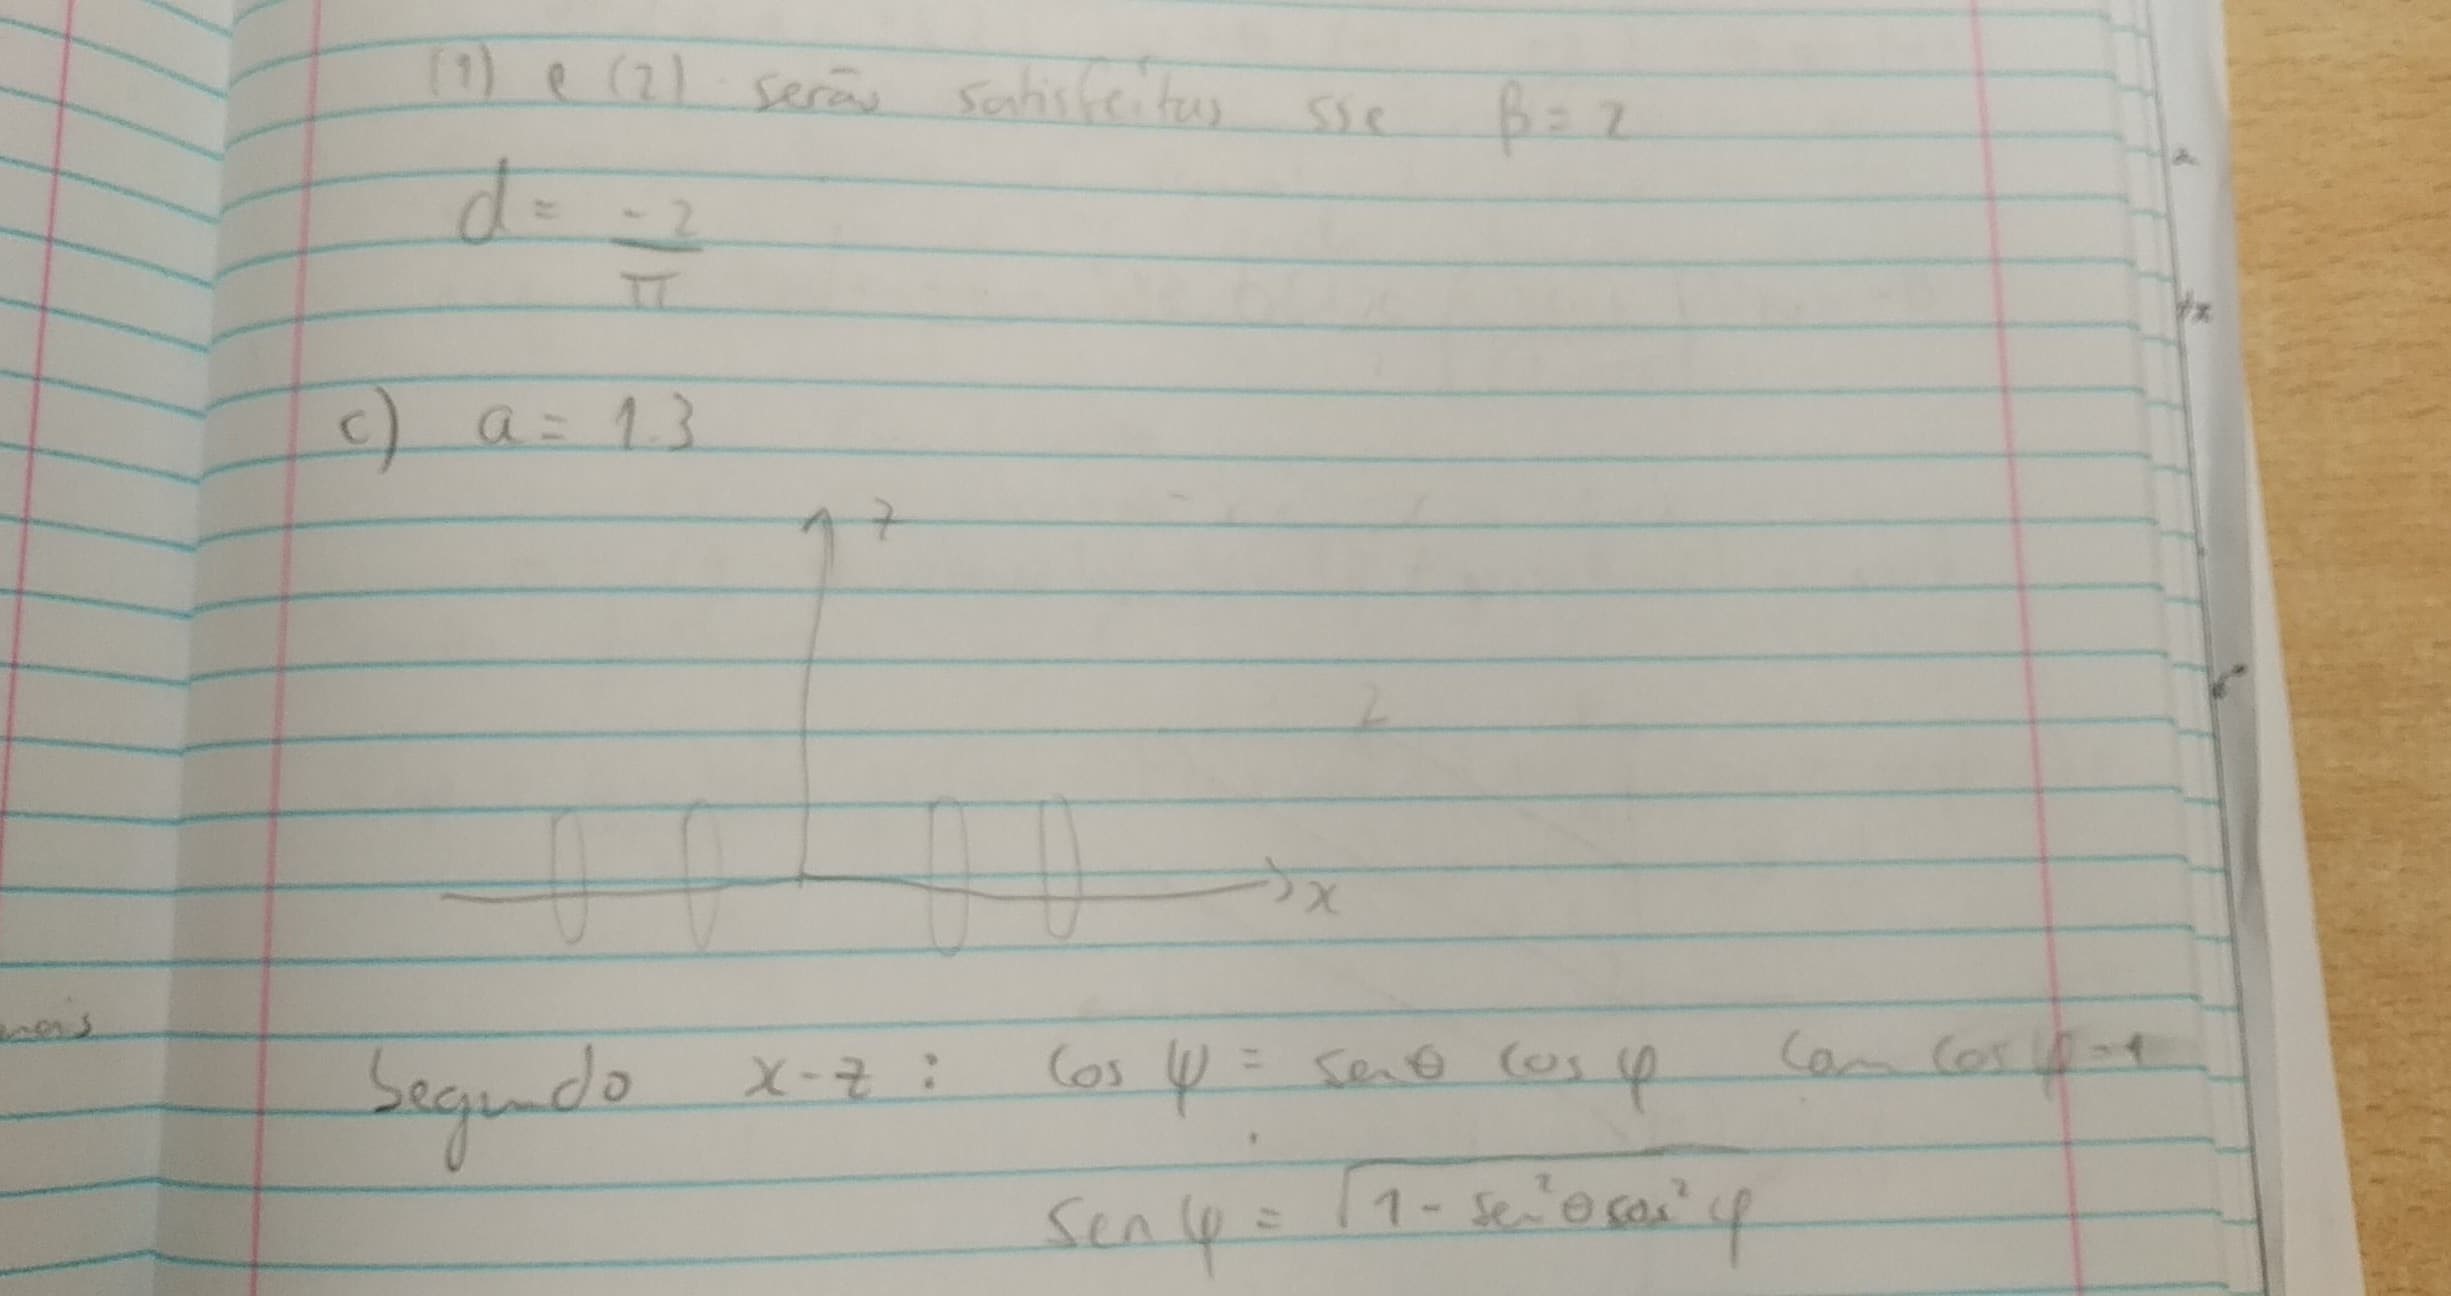 (1) e (2) serão satisfeitas sse β = 2
d = -2/π
c) a = 1.3
z
x
nais
Segundo x-z : cos ψ = senθ cos φ com cos φ=1
sen ψ = √(1 - sen²θ cos² φ)